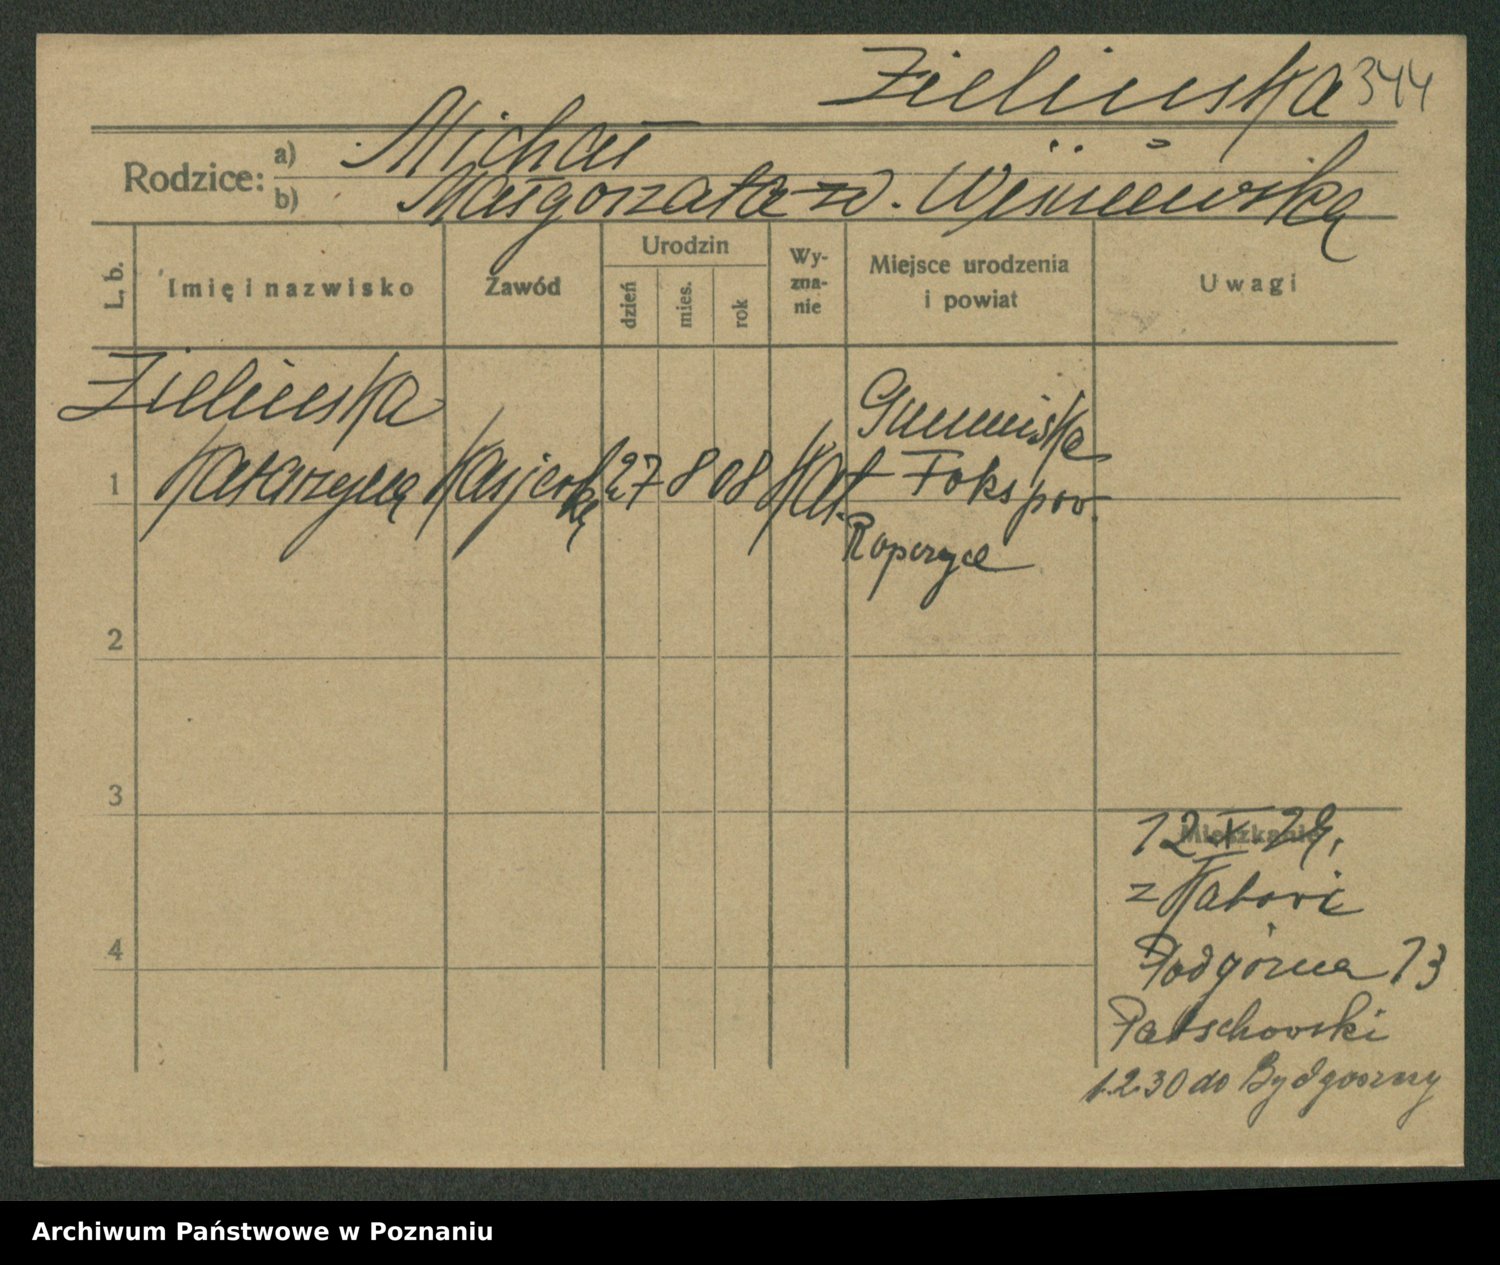 Zielinska 344
Rodzice:
a) Michał
b) Małgorzata zd. Wiśniewska
L. b.
Imię i nazwisko
Zawód
Urodzin
dzień
mies.
rok
Wy-
zna-
nie
Miejsce urodzenia
i powiat
Uwagi
Zielinska
1 Katarzyna
Kasjerka
27 8 08 Kat.
Gumniska
Foks pow.
Ropczyce
2
3
4
Mieszkanie
12.X.29.
z Katovic
Podgórna 13
Patschovski
1.2.30 do Bydgoszczy
Archiwum Państwowe w Poznaniu